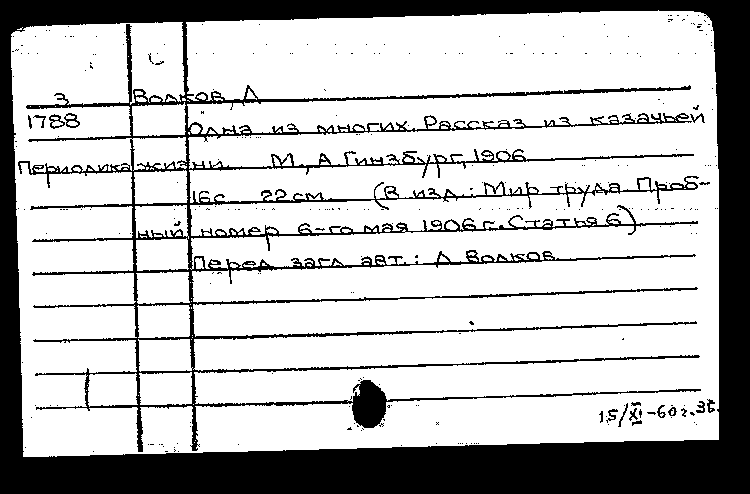 3 Волков, Д
1788
Одна из многих. Рассказ из казачьей
Периодика жизни. М., А. Гинзбург, 1906
16с 22см. (В изд.: Мир труда Проб-
ный номер 6-го мая 1906 г. Статья 6)
Перед загл авт.: Д Волков
15/XI-60г.